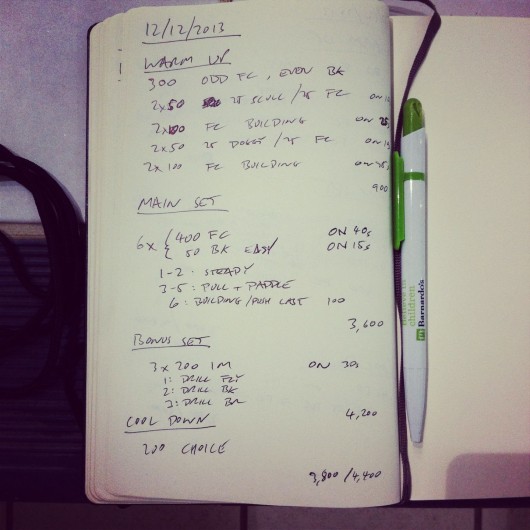 12/12/2013
WARM UP
300 ODD FC, EVEN BK
2x50 25 SCULL/25 FC ON
2x100 FC BUILDING ON 25s
2x50 25 DOGGY/25 FC ON
2x100 FC BUILDING ON
900
MAIN SET
6x { 400 FC ON 40s
{ 50 BK EASY ON 15s
1-2: STEADY
3-5: PULL + PADDLE
6: BUILDING/PUSH LAST 100
3,600
BONUS SET
3x200 IM ON 30s
1: DRILL FLY
2: DRILL BK
3: DRILL BR
4,200
COOL DOWN
200 CHOICE
3,800/4,400
children
Barnardo's